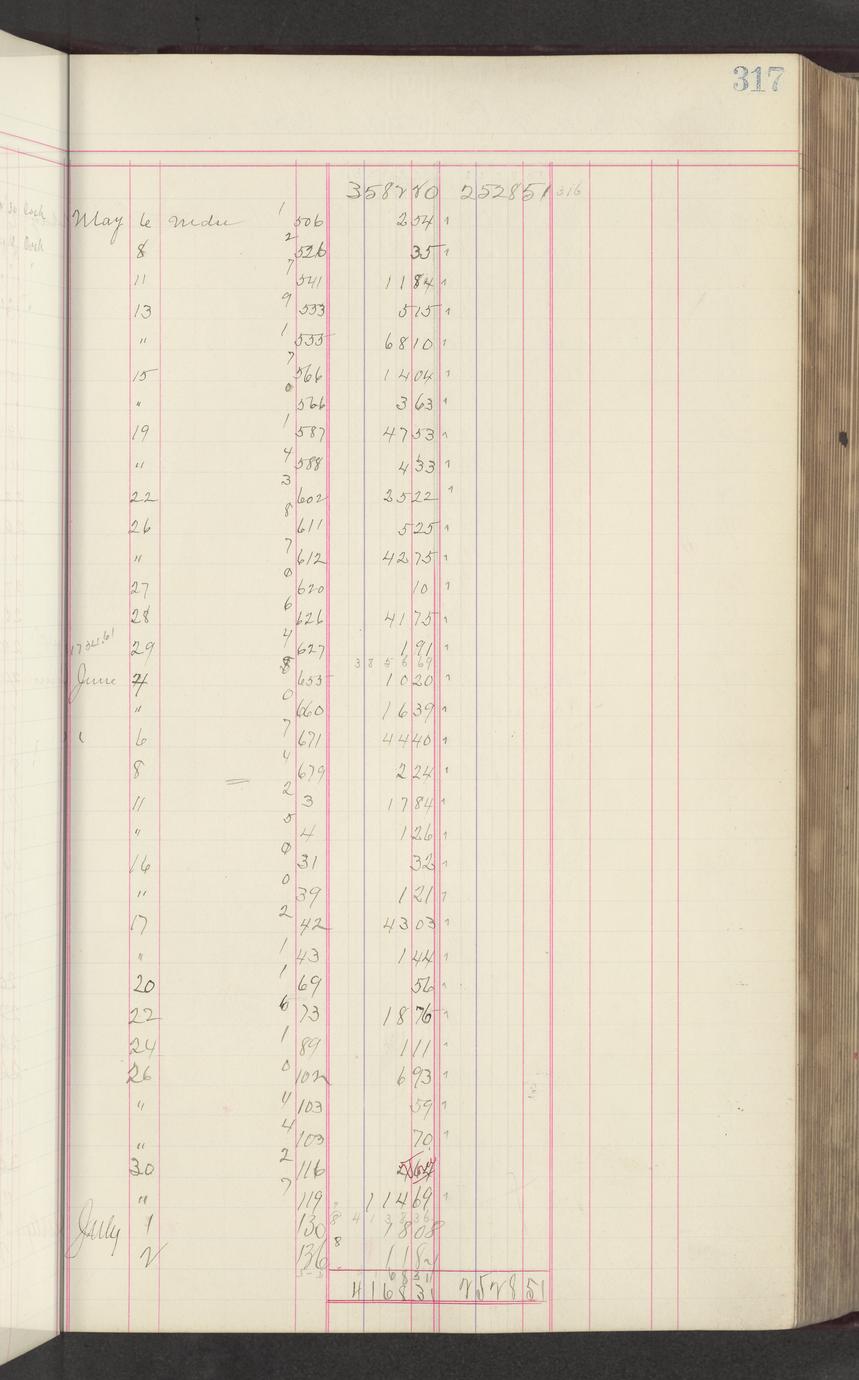 317
358220 252851 316
May 6 Mdse 1 506 254
8 2 526 35
11 7 541 1184
13 9 553 515
" 1 555 6810
15 7 566 1404
" 0 566 363
19 1 587 4753
" 4 588 433
22 3 602 2522
26 8 611 525
" 7 612 4275
27 0 620 10
28 6 626 4175
1734.61 29 4 627 191
3 8 5 6 69
June 4 653 1020
" 0 660 1639
" 6 7 671 4440
8 4 679 224
11 2 3 1784
" 5 4 126
16 0 31 32
" 0 39 121
17 2 42 4303
" 1 43 144
20 1 69 56
22 6 73 1876
24 1 89 111
26 0 102 693
" 4 103 59
" 4 103 70
30 2 116
" 7 119 11469
July 1 8 130 1808
2 8 136
416831 252851